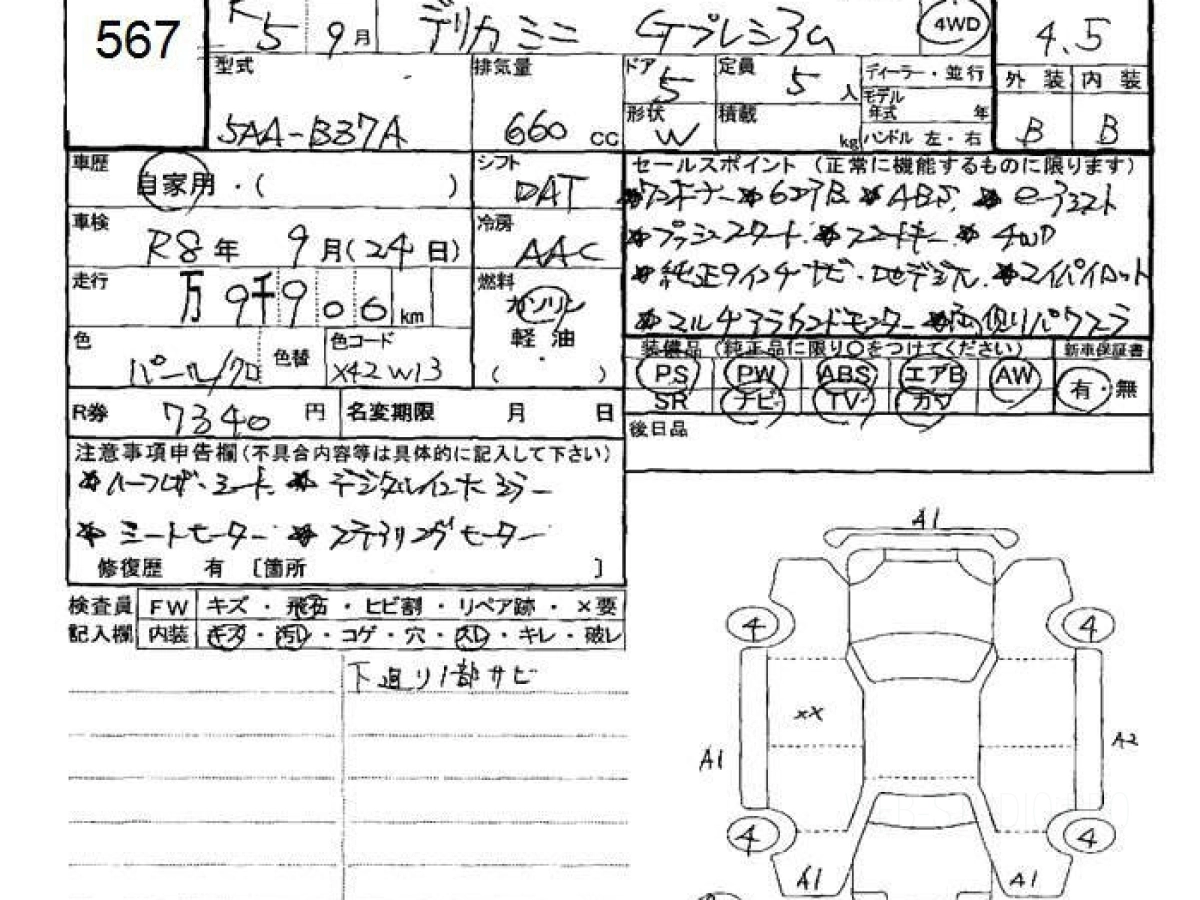 567
R5 9月 デリカミニ Gプレミアム 4WD 4.5
型式 排気量 ドア 定員 ディーラー・並行 外装 内装
5AA-B37A 660cc 5 5人 モデル年式 年 B B
形状 W 積載 kg ハンドル 左・右
車歴 自家用・( ) シフト DAT
車検 R8年 9月(24日) 冷房 AAC
走行 万9千906km 燃料 ガソリン 軽油 ( )
色 パール/クロ 色替 色コード X42 W13
R券 7340円 名変期限 月 日
セールスポイント(正常に機能するものに限ります)
*ワンオーナー *6エアB *ABS *e-アシスト
*プッシュスタート *スマートキー *4WD
*純正9インチナビ・地デジ *マイパイロット
*マルチアラウンドモニター *両側パワスラ
装備品(純正品に限り○をつけてください) 新車保証書
PS PW ABS エアB AW 有・無
SR ナビ TV カワ
後日品
注意事項申告欄(不具合内容等は具体的に記入して下さい)
*ハーフレザーシート *デジタルインナーミラー
*シートヒーター *ステアリングヒーター
修復歴 有 [箇所 ]
検査員 FW キズ・飛石・ヒビ割・リペア跡・×要
記入欄 内装 キズ・汚レ・コゲ・穴・スレ・キレ・破レ
下廻り1部サビ
A1
4 4
XX
A1 A2
4 4
A1 A1